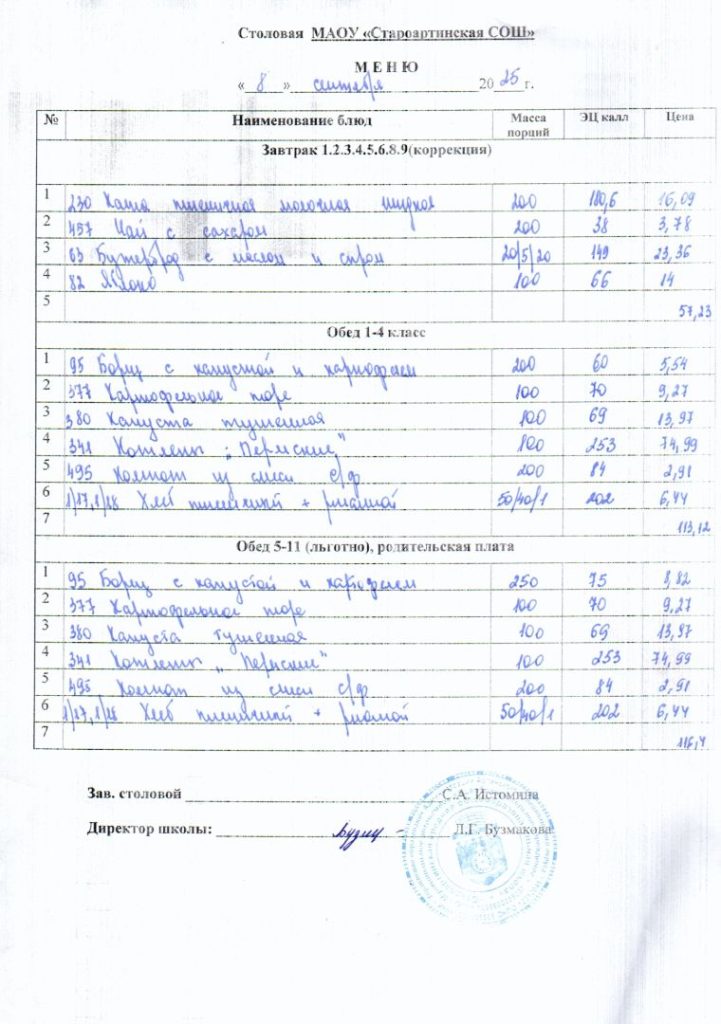 Столовая МАОУ «Староартинская СОШ»
М Е Н Ю
« 8 » сентября 20 25 г.
№ Наименование блюд Масса порций ЭЦ калл Цена
Завтрак 1.2.3.4.5.6.8.9(коррекция)
1 230 Каша пшеничная молочная жидкая 200 180,6 16,09
2 457 Чай с сахаром 200 38 3,78
3 63 Бутерброд с маслом и сыром 20/5/20 149 23,36
4 82 Яблоко 100 66 14
5 57,23
Обед 1-4 класс
1 95 Борщ с капустой и картофелем 200 60 5,54
2 377 Картофельное пюре 100 70 9,27
3 380 Капуста тушенная 100 69 13,97
4 341 Котлеты „Пермские" 100 253 74,99
5 495 Компот из смеси с/ф 200 84 2,91
6 1/17,1/18 Хлеб пшеничный + ржаной 50/40/1 202 6,44
7 113,12
Обед 5-11 (льготно), родительская плата
1 95 Борщ с капустой и картофелем 250 75 8,82
2 377 Картофельное пюре 100 70 9,27
3 380 Капуста тушенная 100 69 13,97
4 341 Котлеты „Пермские" 100 253 74,99
5 495 Компот из смеси с/ф 200 84 2,91
6 1/17,1/18 Хлеб пшеничный + ржаной 50/40/1 202 6,44
7 116,4
Зав. столовой С.А. Истомина
Директор школы: Л.Г. Бузмакова